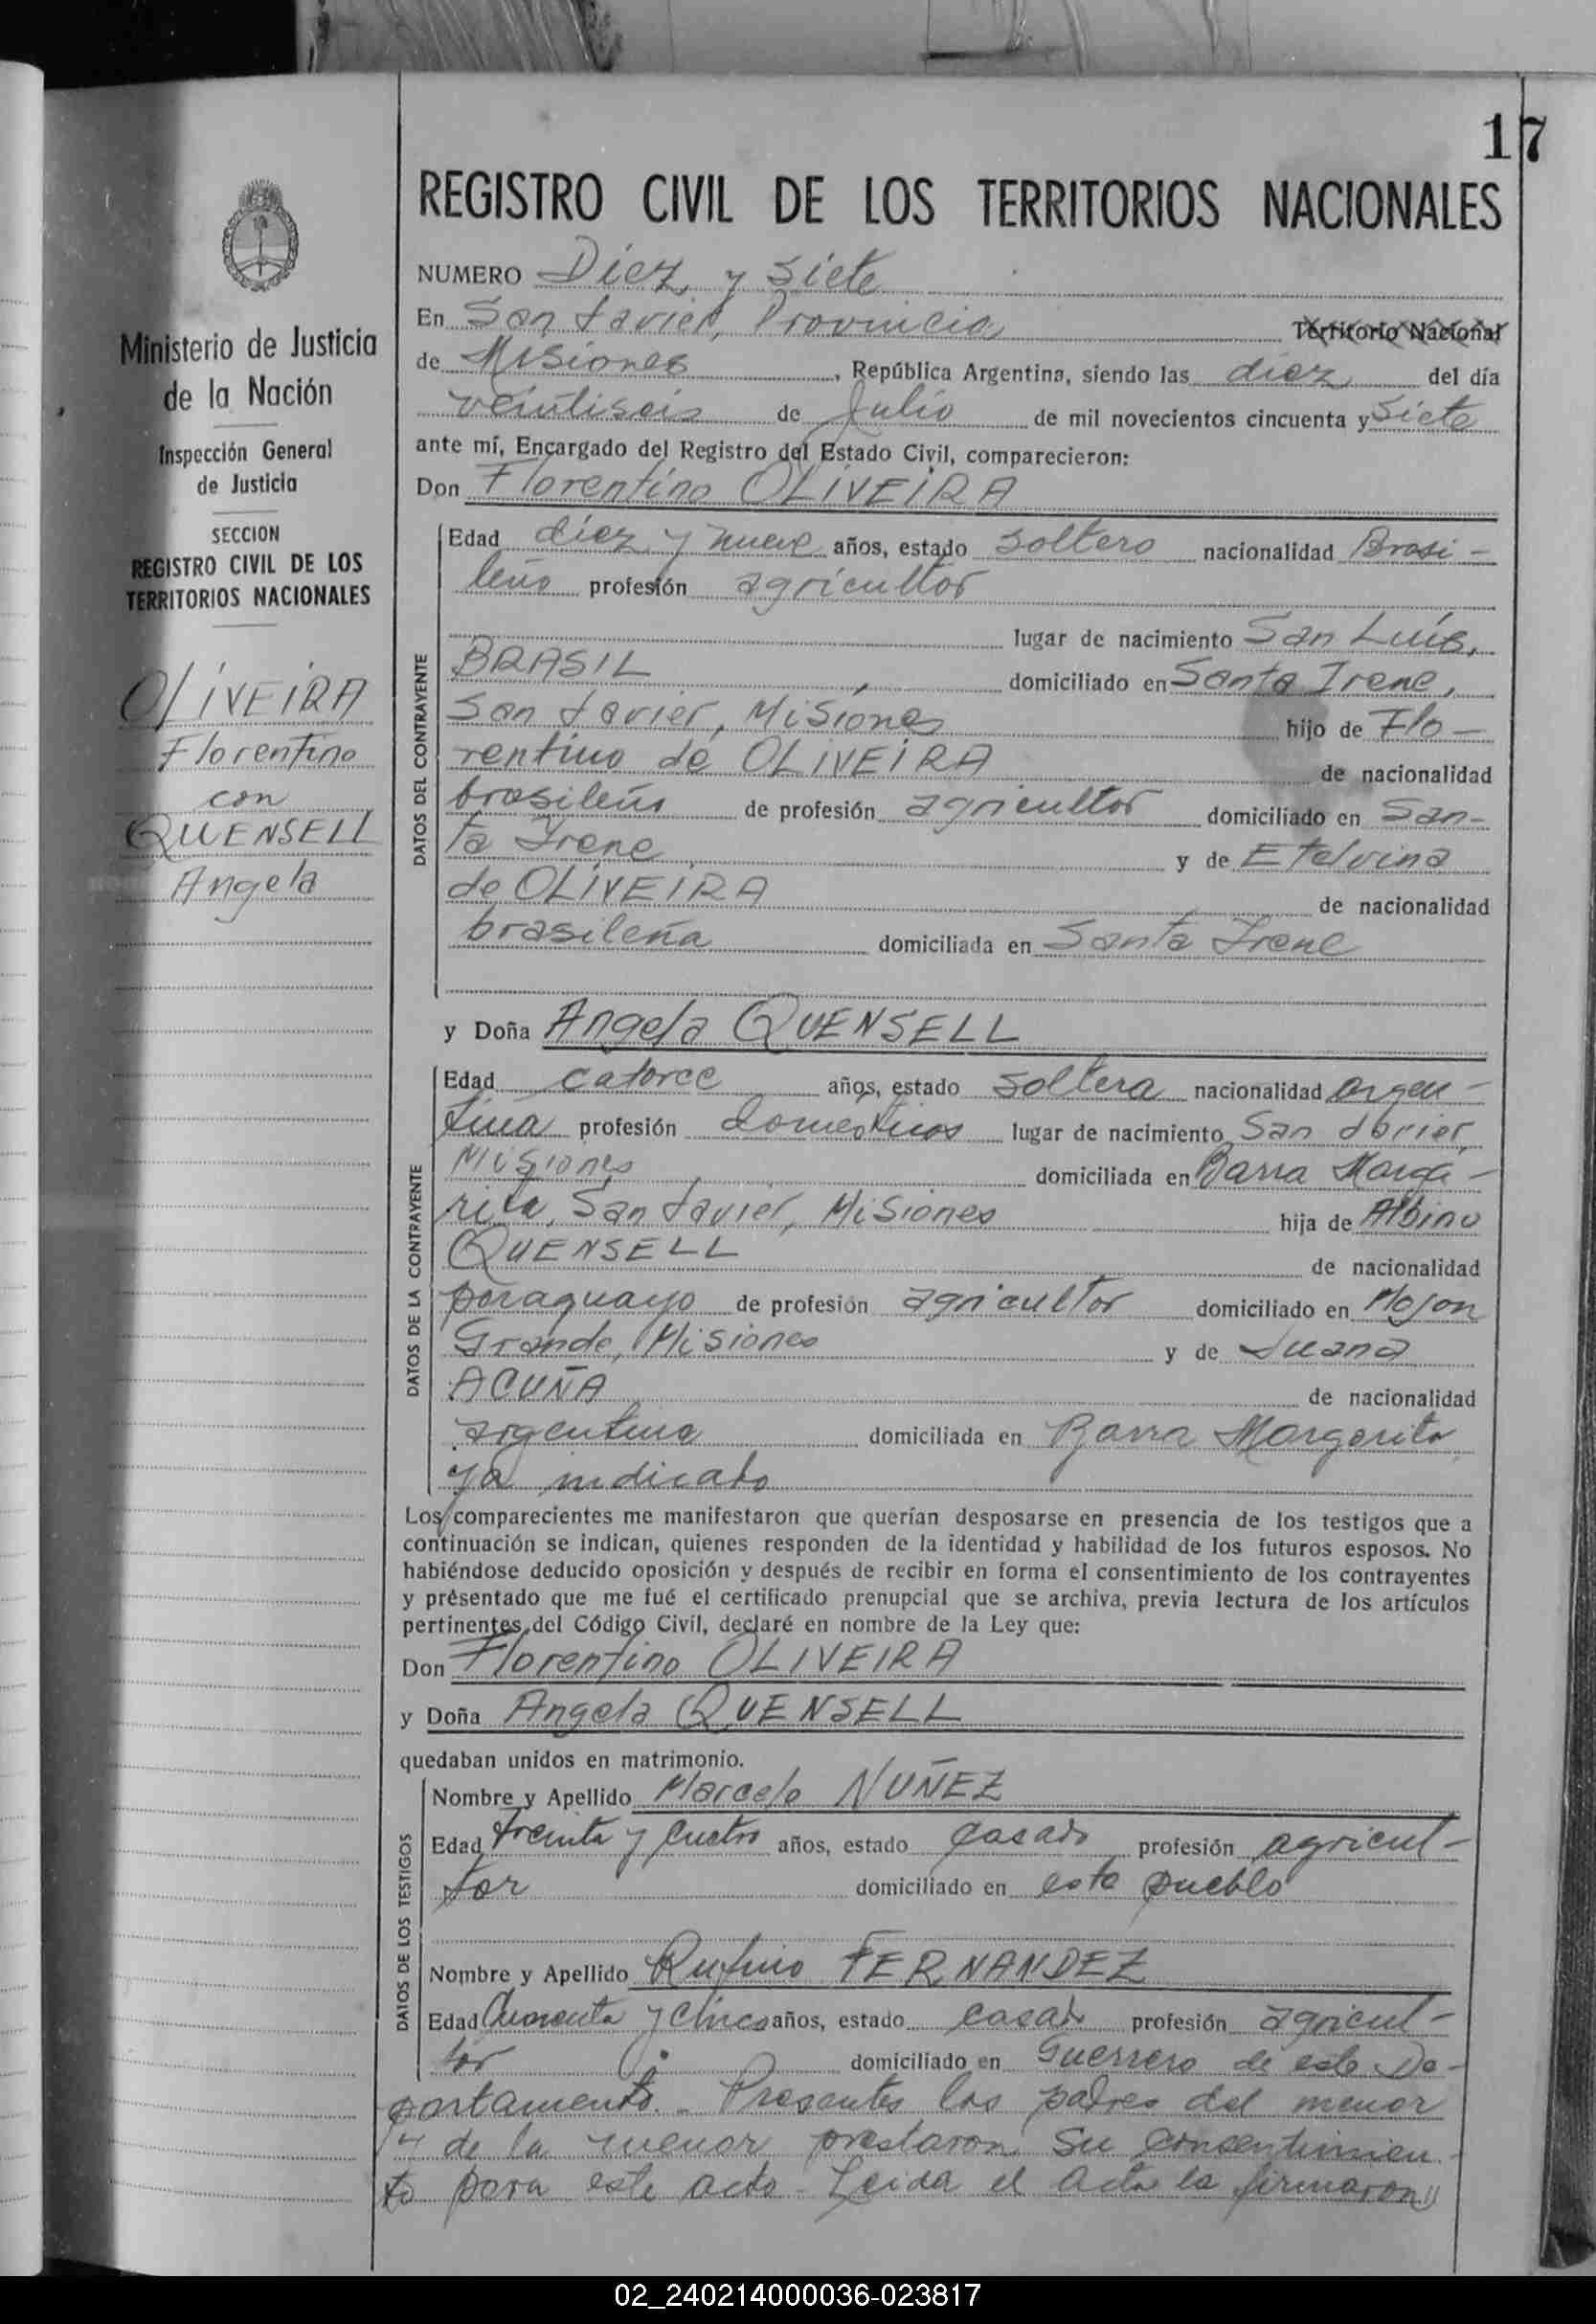 17
REGISTRO CIVIL DE LOS TERRITORIOS NACIONALES
NUMERO Diez y siete
En San Javier, Provincia Territorio Nacional
de Misiones, República Argentina, siendo las diez del día
veintiseis de Julio de mil novecientos cincuenta y Siete
ante mí, Encargado del Registro del Estado Civil, comparecieron:
Don Florentino OLIVEIRA
Ministerio de Justicia
de la Nación
Inspección General
de Justicia
SECCION
REGISTRO CIVIL DE LOS
TERRITORIOS NACIONALES
OLIVEIRA
Florentino
con
QUENSELL
Angela
DATOS DEL CONTRAYENTE
Edad diez y nueve años, estado soltero nacionalidad Brasi-
leño profesión agricultor
lugar de nacimiento San Luis,
BRASIL, domiciliado en Santa Irene,
San Javier, Misiones hijo de Flo-
rentino de OLIVEIRA de nacionalidad
brasileño de profesión agricultor domiciliado en San-
ta Irene y de Etelvina
de OLIVEIRA de nacionalidad
brasileña domiciliada en Santa Irene
y Doña Angela QUENSELL
DATOS DE LA CONTRAYENTE
Edad catorce años, estado soltera nacionalidad argen-
tina profesión domésticos lugar de nacimiento San Javier,
Misiones domiciliada en Barra Marga-
rita, San Javier, Misiones hija de Albino
QUENSELL de nacionalidad
paraguayo de profesión agricultor domiciliado en Mojon
Grande, Misiones y de Juana
ACUÑA de nacionalidad
argentina domiciliada en Barra Margarita
ya indicado
Los comparecientes me manifestaron que querían desposarse en presencia de los testigos que a
continuación se indican, quienes responden de la identidad y habilidad de los futuros esposos. No
habiéndose deducido oposición y después de recibir en forma el consentimiento de los contrayentes
y presentado que me fué el certificado prenupcial que se archiva, previa lectura de los artículos
pertinentes del Código Civil, declaré en nombre de la Ley que:
Don Florentino OLIVEIRA
y Doña Angela QUENSELL
quedaban unidos en matrimonio.
DATOS DE LOS TESTIGOS
Nombre y Apellido Marcelo NUÑEZ
Edad treinta y cuatro años, estado casado profesión agricul-
tor domiciliado en este pueblo
Nombre y Apellido Rufino FERNANDEZ
Edad Cuarenta y cinco años, estado casado profesión agricul-
tor domiciliado en Guerrero de este De-
partamento.- Presentes los padres del menor
y de la menor prestaron su consentimien-
to para este acto - Leida el acta la firmaron
02_240214000036-023817